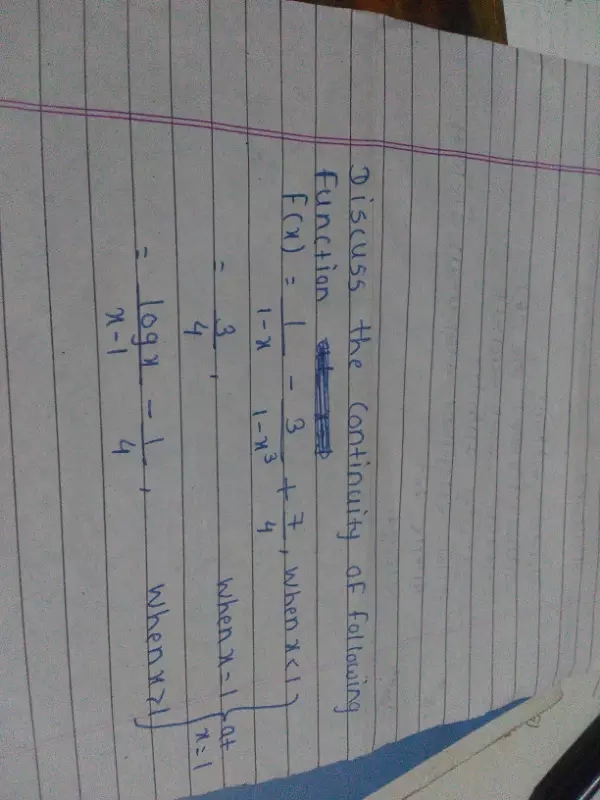 Discuss the continuity of following
function
f(x) = 1/1-x - 3/1-x³ + 7/4, when x<1
= 3/4, when x=1 } at x=1
= log x/x-1 - 1/4, when x>1